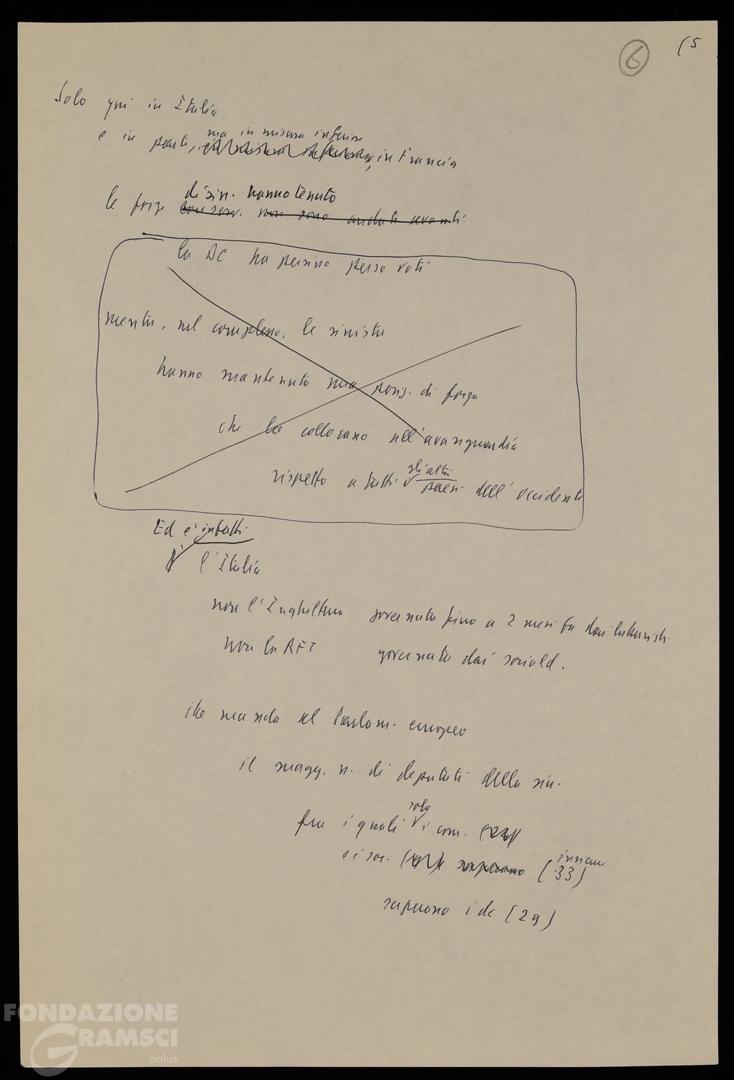 6
(5
Solo qui in Italia
e in parte, ma in misura inferiore, in Francia
le forze di sin. hanno tenuto
conserv. non sono andate avanti
la DC ha persino perso voti
mentre, nel complesso, le sinistre
hanno mantenuto una posiz. di forza
che le collocano all'avanguardia
rispetto a tutti gli altri paesi dell'occidente
Ed è infatti
l'Italia
non l'Inghilterra governata fino a 2 mesi fa dai laburisti
non la RFT governata dai sociald.
che manda al Parlam. europeo
il magg. n. di deputati della sin.
fra i quali solo i com. (24)
e i soc. superano insieme (33)
superano i dc (29)
FONDAZIONE
GRAMSCI
onlus